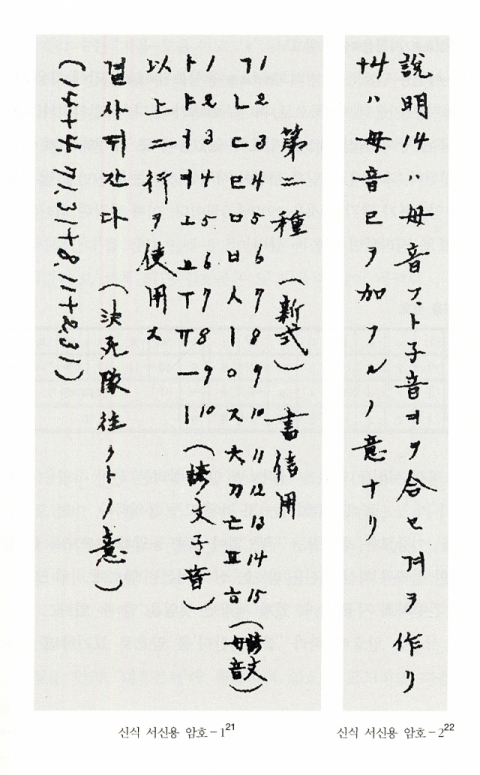 第二種(新式)書信用
ㄱ1 ㄴ2 ㄷ3 ㄹ4 ㅁ5 ㅂ6 ㅅ7 ㅣ8 ㅇ9 ㅈ10 ㅊ11 ㅋ12 ㅌ13 ㅍ14 ㅎ15 (諺文母音)
ㅏ1 ㅑ2 ㅓ3 ㅕ4 ㅗ5 ㅛ6 ㅜ7 ㅠ8 ㅡ9 ㅣ10 (諺文子音)
以上二行ヲ使用ス
결사대간다 (決死隊往クトノ意)
(14+4.71.31+8.11+2.31)
신식 서신용 암호-1 21
說明14ハ母音ㄱト子音ㅕヲ合セ겨ヲ作リ
+4ハ母音ㄹヲ加フルノ意ナリ
신식 서신용 암호-2 22